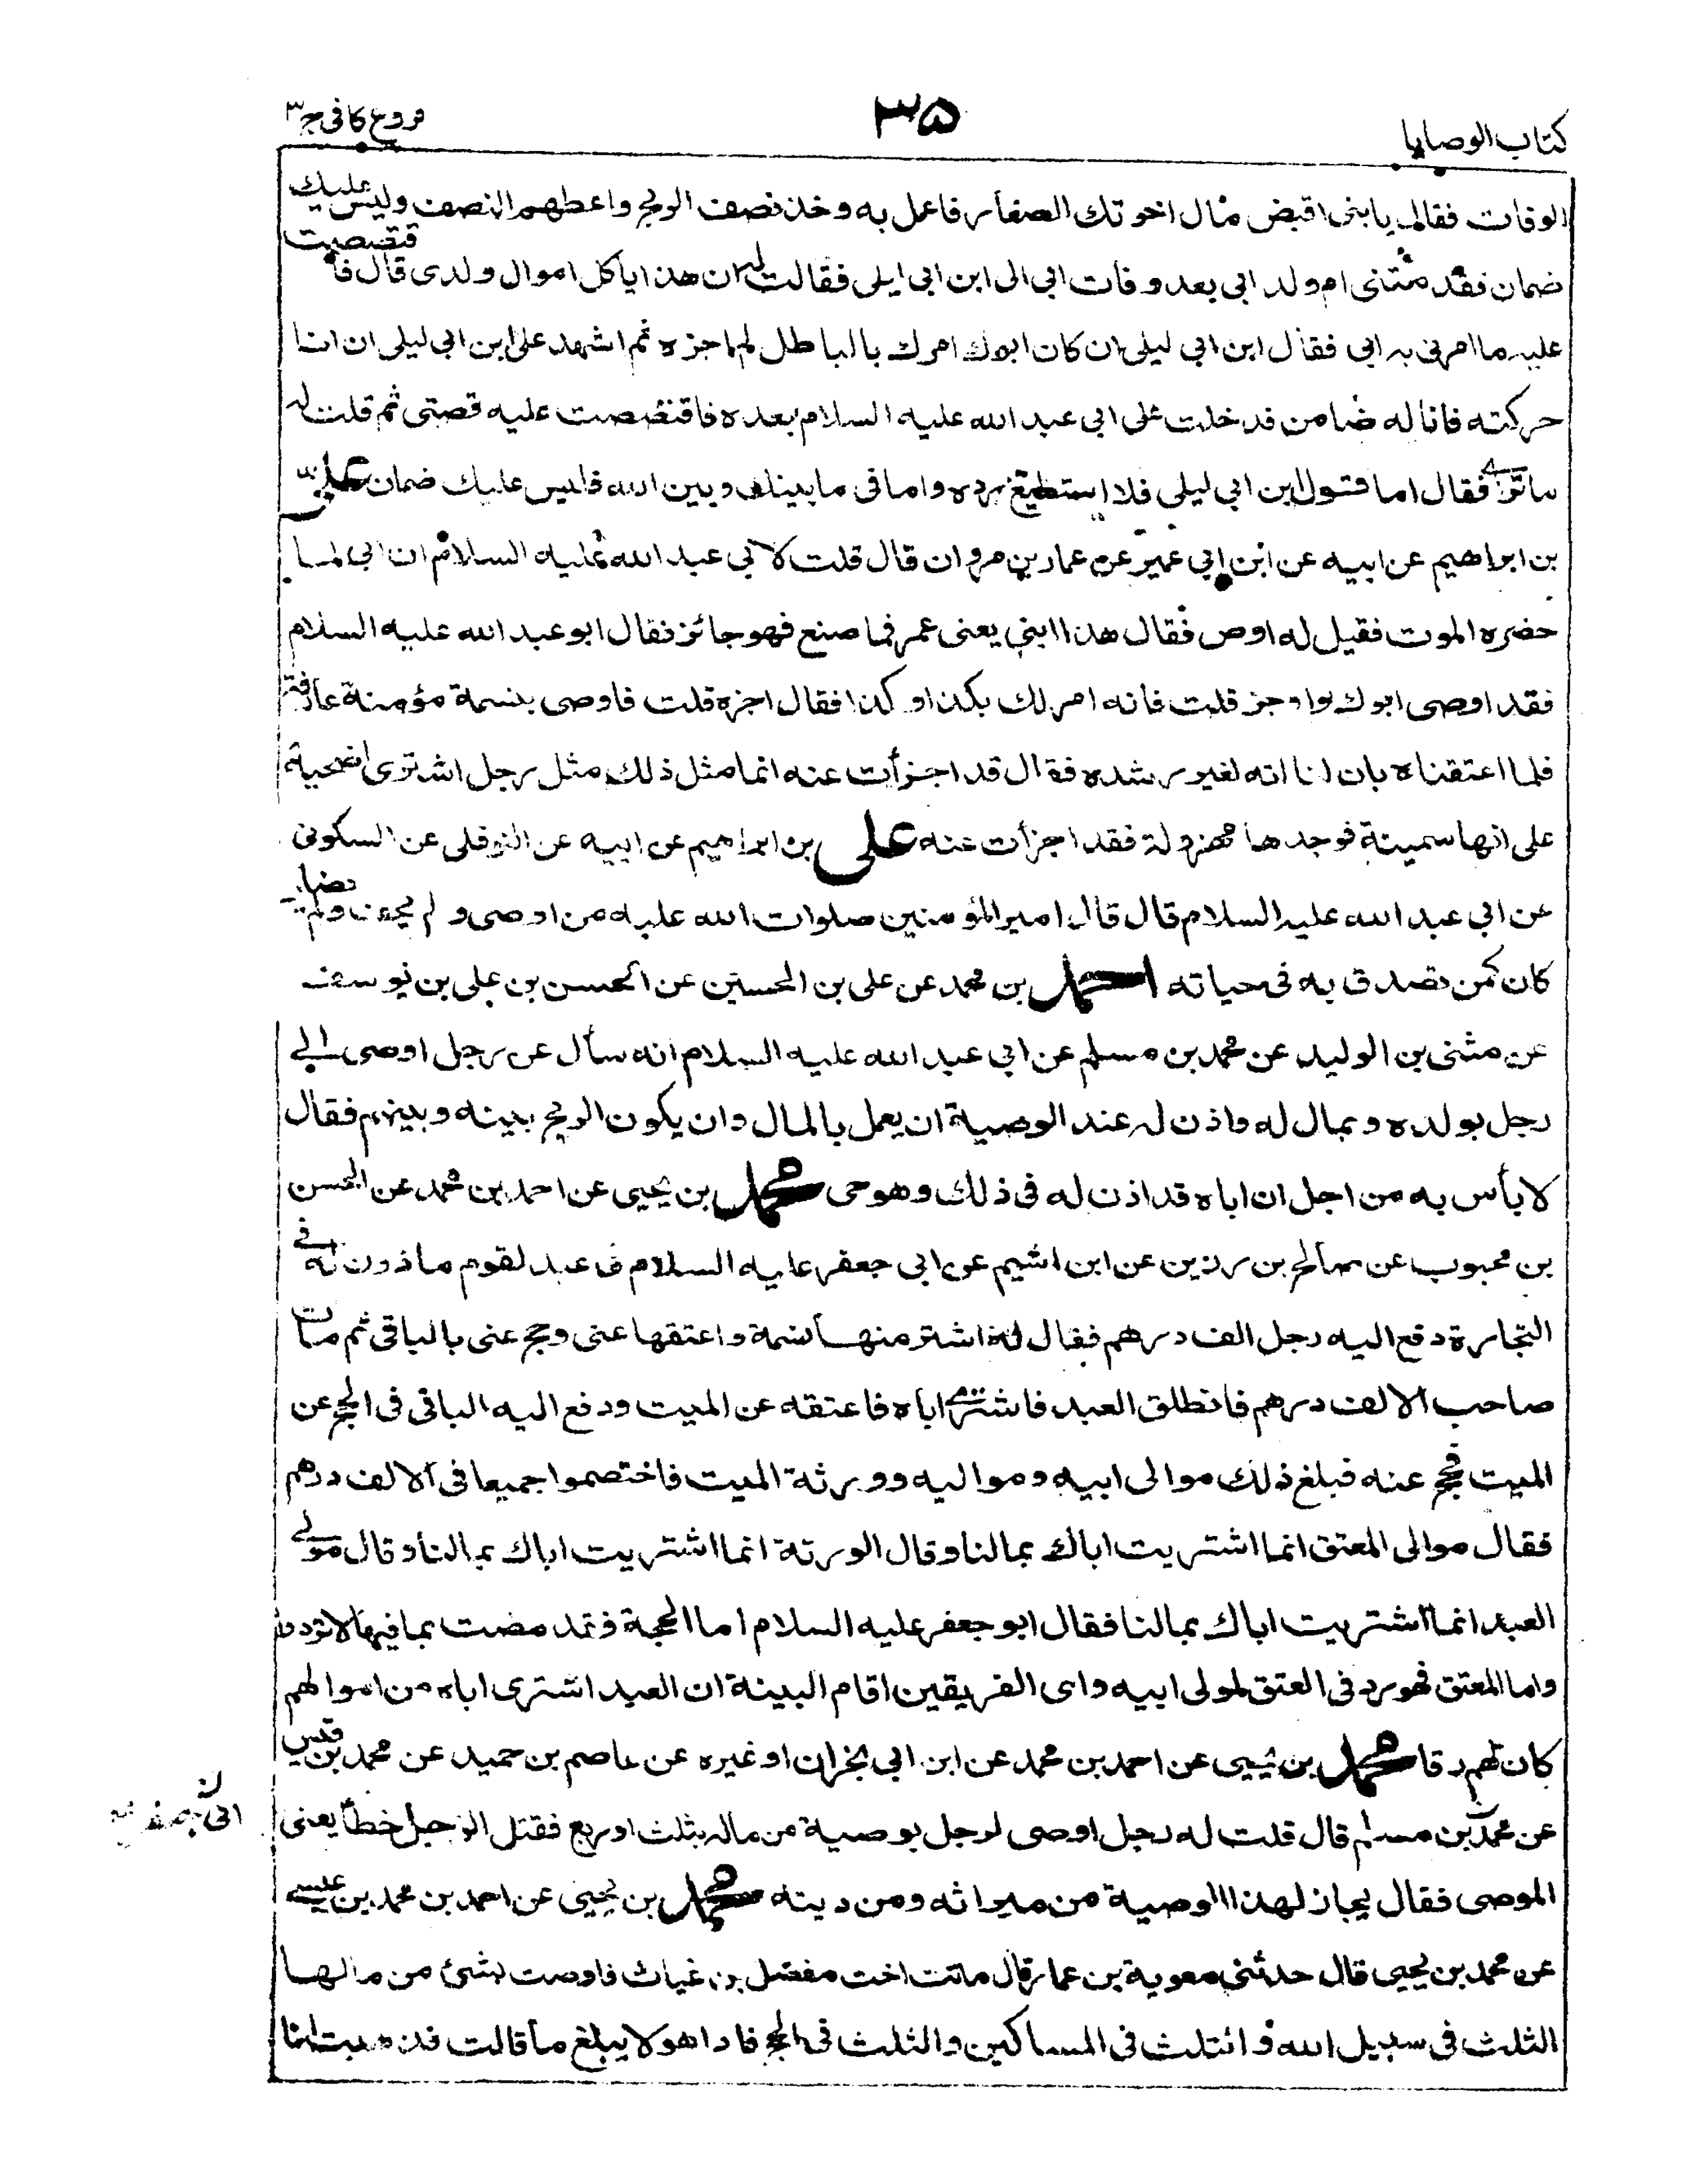 كتاب الوصايا
٣۵
فروع كافى ج٣
الوفات فقال لى يا بنى اقبض مال اخوتك الصغار فاعمل به وخذ نصف الربح واعطهم النصف وليس عليك
ضمان فقدمتنى ام ولد ابى بعد وفات ابى الى ابن ابى ليلى فقالت له ان هذا ياكل اموال ولدى قال فاقتصصت
عليه ما امرنى به ابى فقال ابن ابى ليلى ان كان ابوك امرك بالباطل لم اجزه ثم اشهد على ابن ابى ليلى ان انا
حركته فانا له ضامن فدخلت على ابى عبد الله عليه السلام بعده فاقتصصت عليه قصتى ثم قلت له
ما ترى فقال اما قول ابن ابى ليلى فلا استطيع رده واما فى ما بينك وبين الله فليس عليك ضمان على
بن ابراهيم عن ابيه عن ابن ابى عمير عن عمار بن مروان قال قلت لابى عبد الله عليه السلام ان ابى لما
حضره الموت فقيل له اوص فقال هذا ابنى يعنى عمر فما صنع فهو جائز فقال ابو عبد الله عليه السلام
فقد اوصى ابوك واوجز قلت فانه امر لك بكذا وكذا فقال اجزه قلت فاوصى بنسمة مؤمنة عارفة
فلما اعتقناه بان لنا انه لغير رشده فقال قد اجزأت عنه انما مثل ذلك مثل رجل اشترى اضحية
على انها سمينة فوجدها مهزولة فقد اجزأت عنه على بن ابراهيم عن ابيه عن النوفلى عن السكونى
عن ابى عبد الله عليه السلام قال قال امير المؤمنين صلوات الله عليه من اوصى ولم يحف ولم يضار
كان كمن تصدق به فى حياته احمد بن محمد عن على بن الحسين عن الحسن بن على بن يوسف
عن مثنى بن الوليد عن محمد بن مسلم عن ابى عبد الله عليه السلام انه سأل عن رجل اوصى الى
رجل بولده وبمال له واذن له عند الوصية ان يعمل بالمال وان يكون الربح بينه وبينهم فقال
لا بأس به من اجل ان اباه قد اذن له فى ذلك وهو حى محمد بن يحيى عن احمد بن محمد عن الحسن
بن محبوب عن صالح بن رزين عن ابن اشيم عن ابى جعفر عليه السلام فى عبد لقوم ماذون له فى
التجارة دفع اليه رجل الف درهم فقال له اشتر منها نسمة واعتقها عنى وحج عنى بالباقى ثم مات
صاحب الالف درهم فانطلق العبد فاشترى اباه فاعتقه عن الميت ودفع اليه الباقى فى الحج عن
الميت فحج عنه فبلغ ذلك موالى ابيه ومواليه وورثة الميت فاختصموا جميعا فى الالف درهم
فقال موالى المعتق انما اشتريت اباك بمالنا وقال الورثة انما اشتريت اباك بمالنا وقال مولى
العبد انما اشتريت اباك بمالنا فقال ابو جعفر عليه السلام اما الحجة فقد مضت بما فيها لا ترد
واما المعتق فهو رد فى العتق لمولى ابيه واى الفريقين اقام البينة ان العبد اشترى اباه من اموالهم
كان لهم رقا محمد بن يحيى عن احمد بن محمد عن ابن ابى نجران او غيره عن عاصم بن حميد عن محمد بن قيس
عن محمد بن مسلم قال قلت له رجل اوصى لرجل بوصية من ماله بثلث او ربع فقتل الرجل خطأ يعنى
الموصى فقال يجاز لهذا الوصية من ميراثه ومن ديته محمد بن يحيى عن احمد بن محمد بن عيسى
عن محمد بن يحيى قال حدثنى معوية بن عمار قال ماتت اخت مفضل بن غياث فاوصت بشئ من مالها
الثلث فى سبيل الله والثلث فى المساكين والثلث فى الحج فاذا هو لا يبلغ ما قالت فذهبت انا